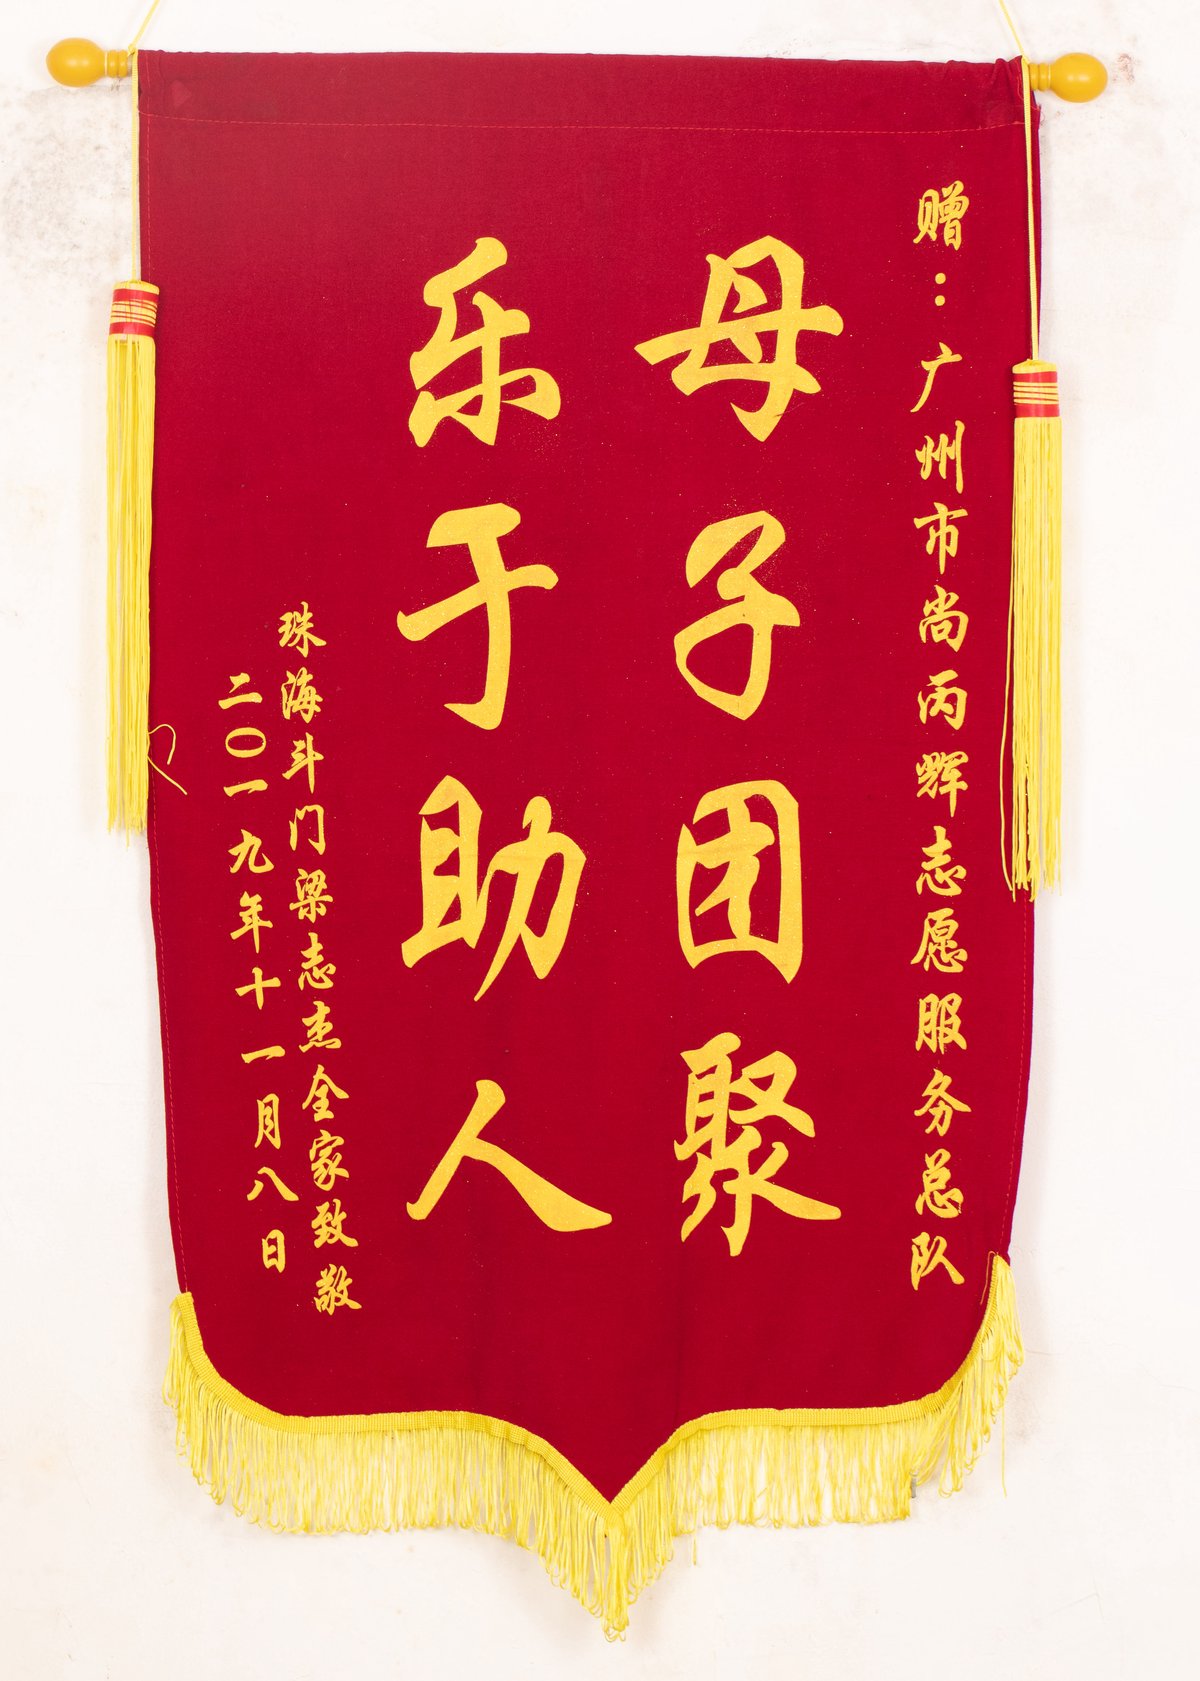 赠：广州市尚丙辉志愿服务总队
母子团聚
乐于助人
珠海斗门梁志杰全家致敬
二〇一九年十一月八日